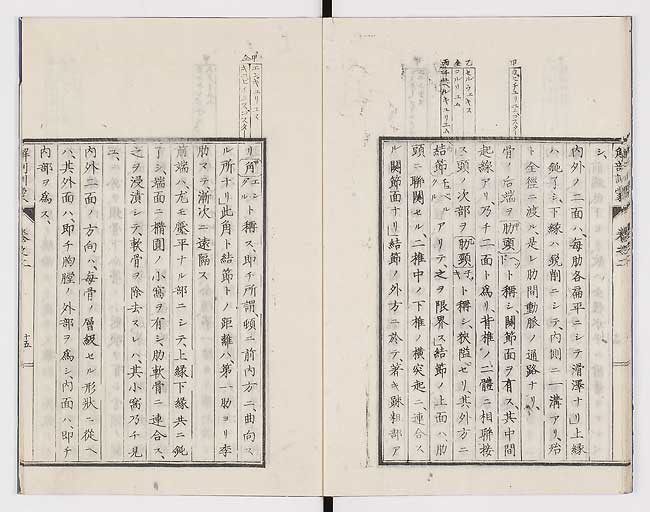 シ、
内外ノ二面ハ、毎肋各扁平ニシテ滑澤ナリ、上縁
ハ鈍了シ、下縁ハ鋭削ニシテ、内側ニ一溝アリ、殆
ト全徑ニ渡ル、是レ肋間動脈ノ通路ナリ、
骨ノ后端ヲ肋頭ト稱シ、關節面ヲ有ス、其中間
起線アリ乃チ二面ト爲リ、脊椎ノ二體ニ相聯接
ス頭ノ次部ヲ肋頸ト稱シ、狹隘ゼリ、其外方ニ
結節アリテ、之ヲ限界ス結節ノ上面ハ、肋
頭ニ聯關セル、二椎中ノ下椎ノ横突起ニ、連合ス
ル關節面ナリ、結節ノ外方ニ於テ、著キ踈粗部ア
甲
乙 セルウェキス
リ角ト稱ス、即チ所謂、頓ニ前内方ニ、曲向ス
ル所ナリ、此角ト結節トノ距離ハ、第一肋ヨリ季
肋マテ、漸次ニ遠隔ス
前端ハ、尤モ壓平ナル部ニシテ、上縁下縁共ニ鈍
了シ、端面ニ橢圓ノ小窩ヲ有シ、肋軟骨ニ連合ス、
之ヲ浸漬シテ、軟骨ヲ除去スレハ、其小窩乃チ見
ユ、
内外二面ノ方向ハ、毎骨ノ層級セル形狀ニ從ヘ
ハ、其外面ハ、即チ胸膛ノ外部ヲ爲シ、内面ハ、即チ
内部ヲ爲ス、
十五